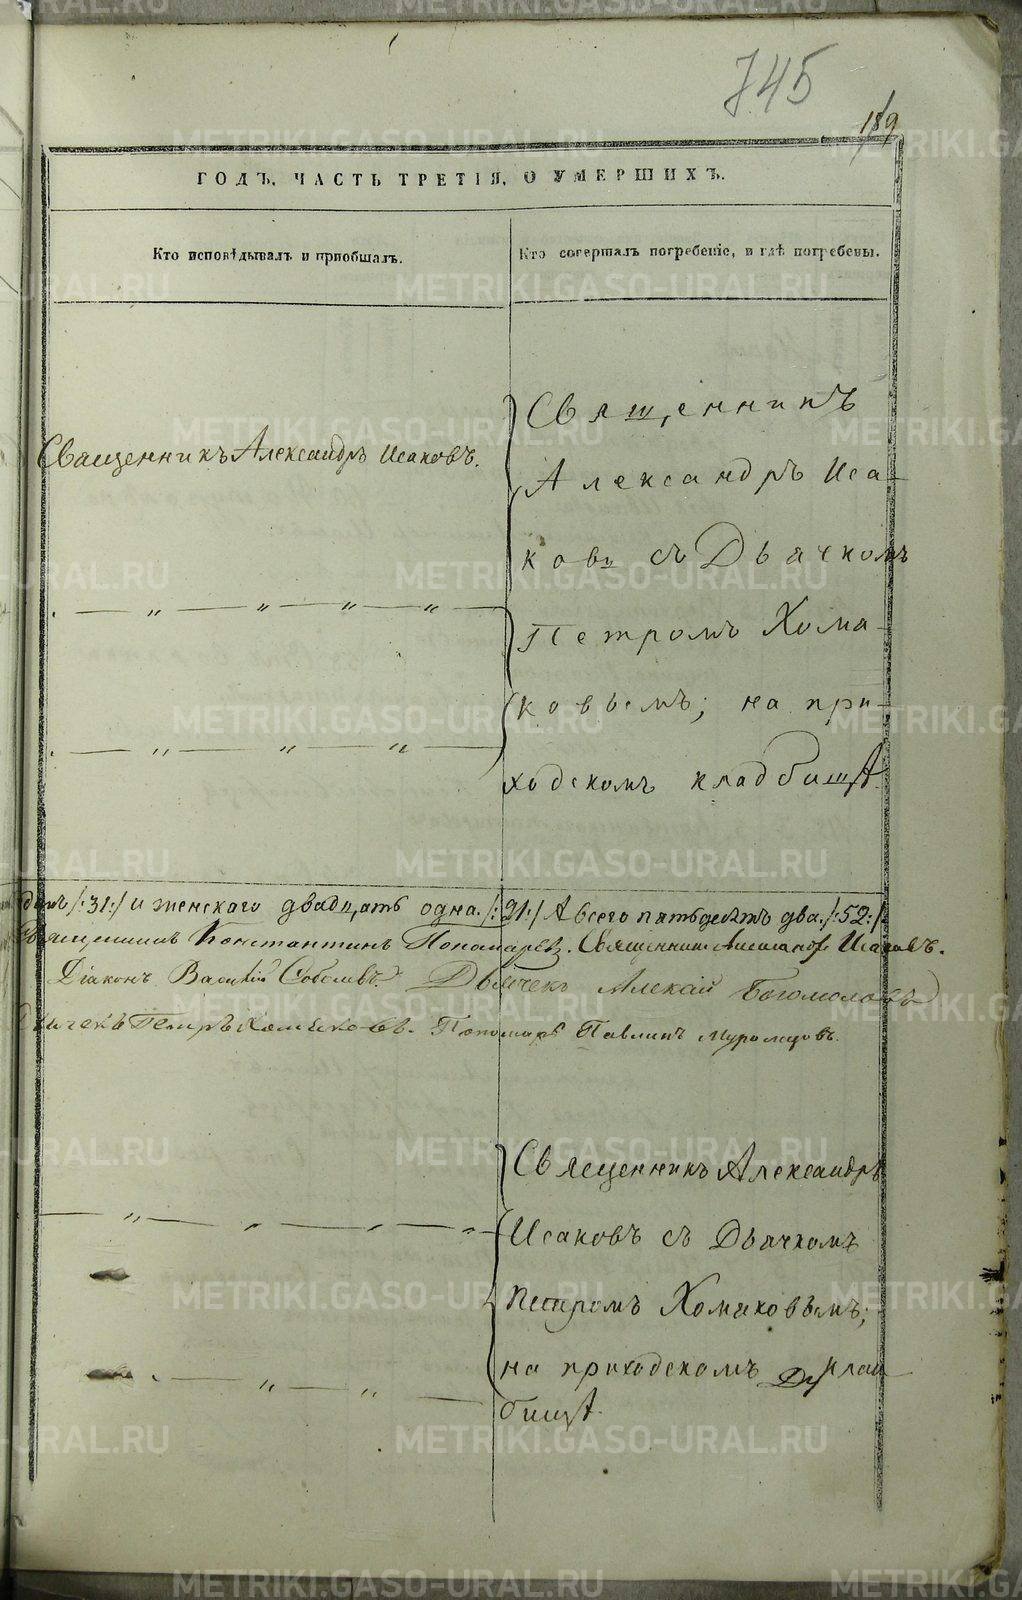 745
189
ГОДЪ, ЧАСТЬ ТРЕТІЯ, О УМЕРШИХЪ.
Кто исповѣдывалъ и пріобщалъ.
Кто совершалъ погребеніе, и гдѣ погребены.
Священникъ Александръ Исаковъ.
— „ — „ — „ — „ —
— „ — „ — „ —
Священникъ
Александръ Иса-
ковъ съ Дьячкомъ
Петромъ Хома-
ковымъ; на при-
ходскомъ кладбищѣ.
динъ /:31:/ и женскаго двадцать одна. /:21:/ А всего пятьдесятъ два. /:52:/
Священникъ Константинъ Пономаревъ. Священникъ Александръ Исаковъ.
Діаконъ Василій Соболевъ. Дьячекъ Алексій Богомоловъ
Дьячекъ Петръ Хомаковъ. Пономарь Павлинъ Муромцовъ.
— „ — „ — „ — „ —
— „ — „ —
Священникъ Александръ
Исаковъ съ Дьячкомъ
Петромъ Хомаковымъ;
на приходскомъ клад
бищѣ.
METRIKI.GASO-URAL.RU